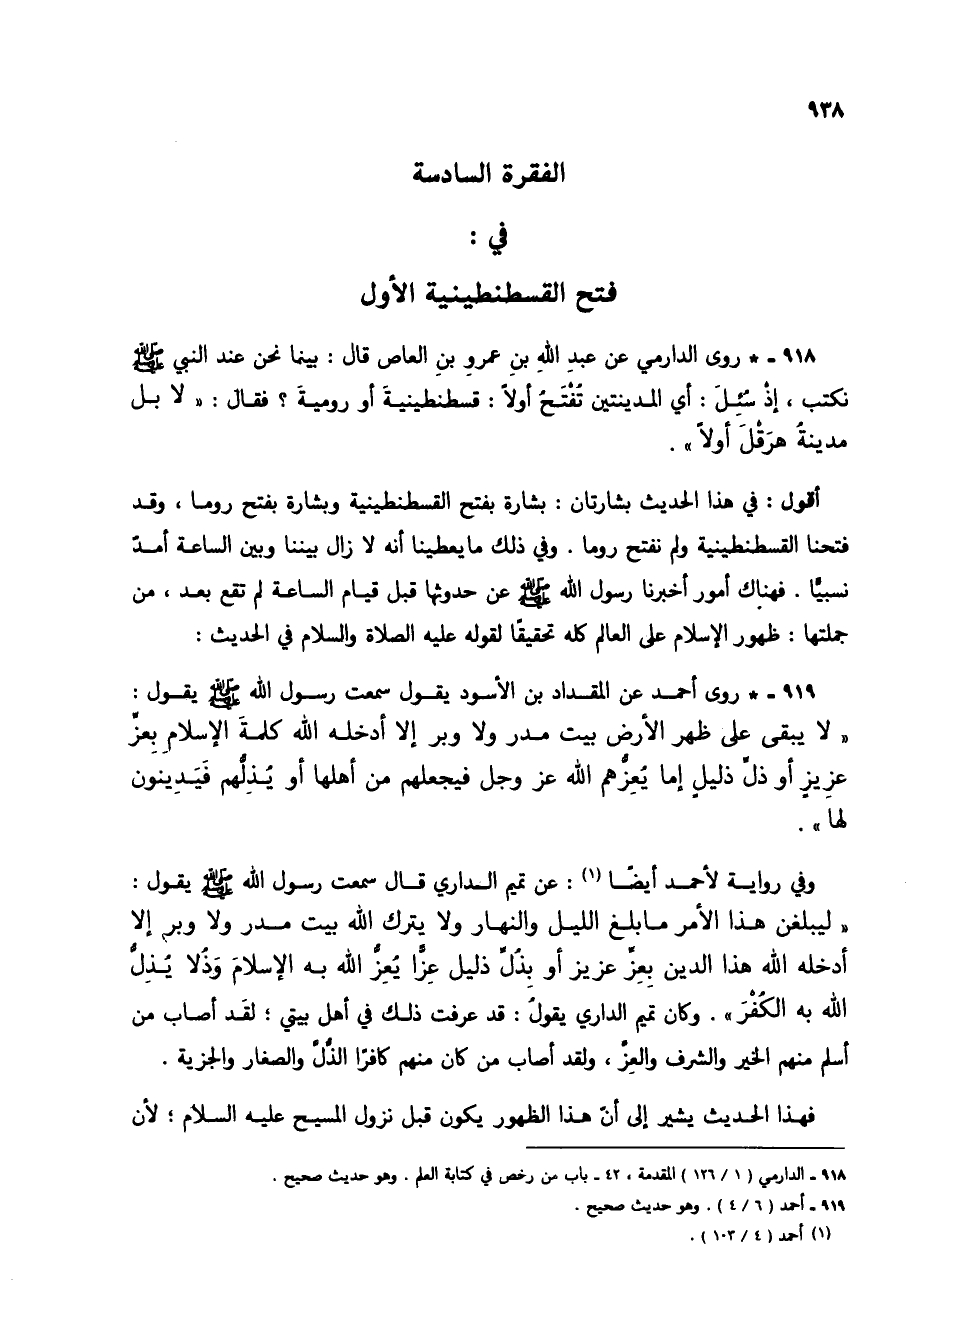 ٩٣٨
الفقرة السادسة
في :
فتح القسطنطينية الأول
٩١٨ - * روى الدارمي عن عبدِ اللهِ بنِ عمروِ بنِ العاص قال : بينما نحن عند النبي ﷺ
نكتب ، إذْ سُئِلَ : أي المدينتين تُفْتَحُ أولاً : قسطنطينيةَ أو روميةَ ؟ فقال : « لا بل
مدينةُ هِرَقْلَ أولاً » .
أقول : في هذا الحديث بشارتان : بشارة بفتح القسطنطينية وبشارة بفتح روما ، وقد
فتحنا القسطنطينية ولم نفتح روما . وفي ذلك مايعطينا أنه لا زال بيننا وبين الساعة أمدّ
نسبيًّا . فهناك أمور أخبرنا رسول الله ﷺ عن حدوثها قبل قيام الساعة لم تقع بعد ، من
جملتها : ظهور الإسلام على العالم كله تحقيقًا لقوله عليه الصلاة والسلام في الحديث :
٩١٩ - * روى أحمد عن المقداد بن الأسود يقول سمعت رسول الله ﷺ يقول :
« لا يبقى على ظهر الأرض بيت مدر ولا وبر إلا أدخله الله كلمةَ الإسلامِ بِعِزِّ
عزيزٍ أو ذلِّ ذليلٍ إما يُعِزُّهم الله عز وجل فيجعلهم من أهلها أو يُذِلُّهم فَيَدِينون
لها » .
وفي رواية لأحمد أيضًا (١) : عن تميم الداري قال سمعت رسول الله ﷺ يقول :
« ليبلغن هذا الأمر مابلغ الليل والنهار ولا يترك الله بيت مدر ولا وبر إلا
أدخله الله هذا الدين بِعِزِّ عزيز أو بِذُلِّ ذليل عِزًّا يُعِزُّ الله به الإسلامَ وَذُلا يُذِلُّ
الله به الكُفْرَ » . وكان تميم الداري يقولُ : قد عرفت ذلك في أهل بيتي ؛ لقَد أصاب من
أسلم منهم الخير والشرف والعِزّ ، ولقد أصاب من كان منهم كافرًا الذُّلّ والصغار والجزية .
فهذا الحديث يشير إلى أنّ هذا الظهور يكون قبل نزول المسيح عليه السلام ؛ لأن
٩١٨ - الدارمي ( ١ / ١٢٦ ) المقدمة ، ٤٢ - باب من رخص في كتابة العلم . وهو حديث صحيح .
٩١٩ - أحمد ( ٦ / ٤ ) . وهو حديث صحيح .
(١) أحمد ( ٤ / ١٠٣ ) .